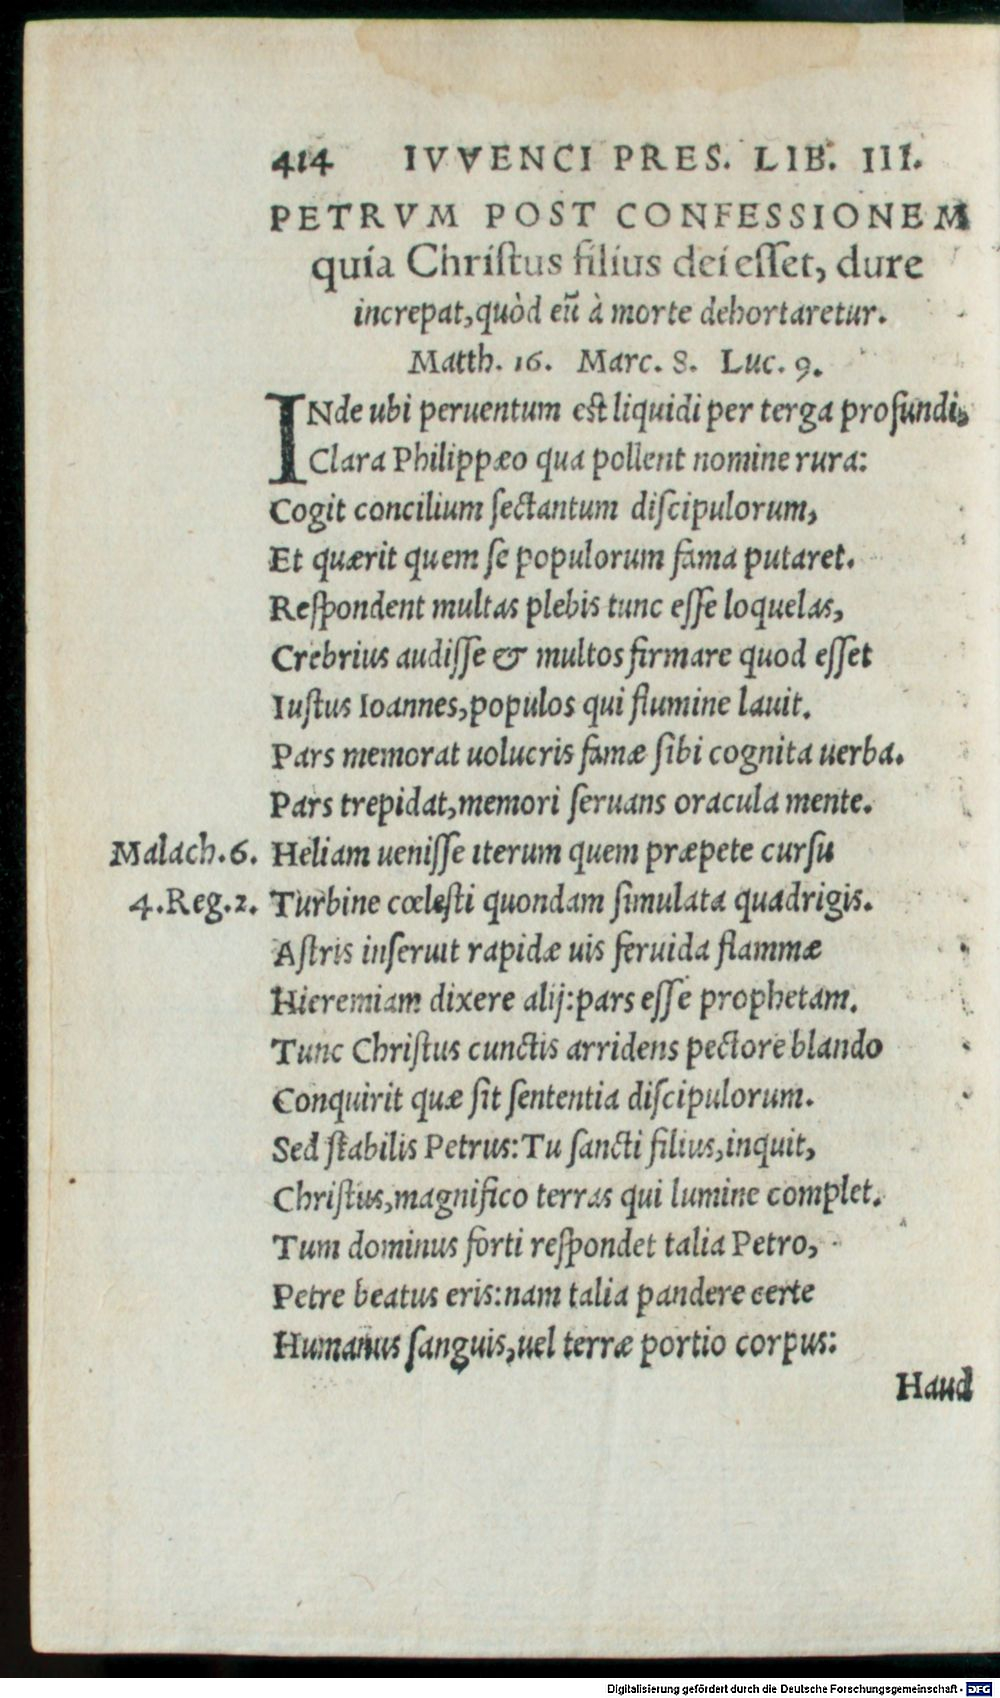 414 IVVENCI PRES. LIB. III.
PETRVM POST CONFESSIONEM
quia Christus filius dei esset, dure
increpat, quòd eũ à morte dehortaretur.
Matth. 16. Marc. 8. Luc. 9.
INde ubi peruentum est liquidi per terga profundi,
Clara Philippæo qua pollent nomine rura:
Cogit concilium sectantum discipulorum,
Et quærit quem se populorum fama putaret.
Respondent multas plebis tunc esse loquelas,
Crebrius audisse & multos firmare quod esset
Iustus Ioannes, populos qui flumine lauit.
Pars memorat uolucris famæ sibi cognita uerba.
Pars trepidat, memori seruans oracula mente.
Malach. 6. Heliam uenisse iterum quem præpete cursu
4. Reg. 2. Turbine cœlesti quondam simulata quadrigis.
Astris inseruit rapidæ uis feruida flammæ
Hieremiam dixere alij: pars esse prophetam.
Tunc Christus cunctis arridens pectore blando
Conquirit quæ sit sententia discipulorum.
Sed stabilis Petrus: Tu sancti filius, inquit,
Christus, magnifico terras qui lumine complet.
Tum dominus forti respondet talia Petro,
Petre beatus eris: nam talia pandere certe
Humanus sanguis, uel terræ portio corpus:
Haud
Digitalisierung gefördert durch die Deutsche Forschungsgemeinschaft - DFG